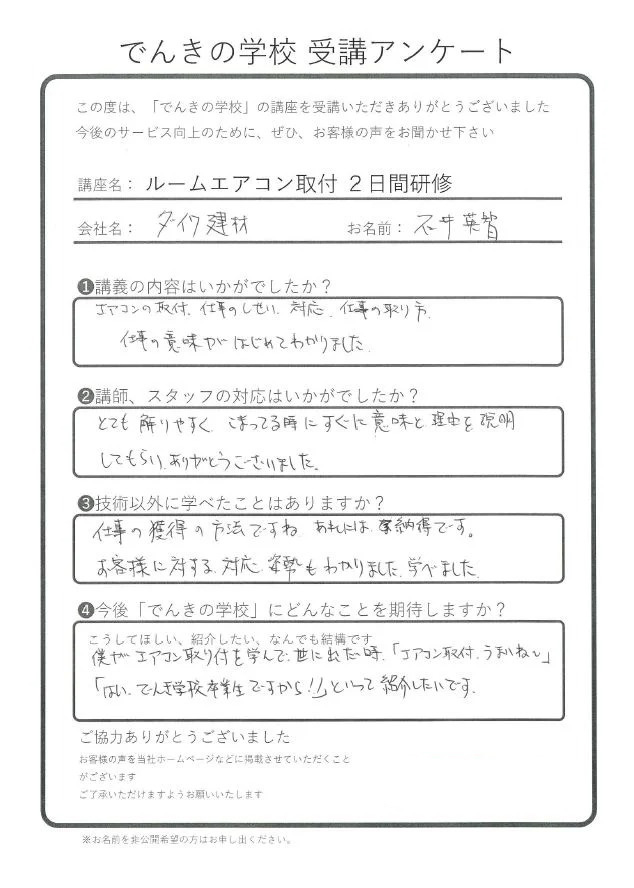 でんきの学校 受講アンケート
この度は、「でんきの学校」の講座を受講いただきありがとうございました
今後のサービス向上のために、ぜひ、お客様の声をお聞かせ下さい
講座名： ルームエアコン取付 ２日間研修
会社名： ダイワ建材 お名前： 石井英智
❶講義の内容はいかがでしたか？
エアコンの取付、仕事のしせい、対応、仕事の取り方、
仕事の意味がはじめてわかりました。
❷講師、スタッフの対応はいかがでしたか？
とても解りやすく、こまってる時にすぐに意味と理由を説明
してもらい、ありがとうございました。
❸技術以外に学べたことはありますか？
仕事の獲得の方法ですね、あれには、納得です。
お客様に対する対応、姿勢もわかりました、学べました。
❹今後「でんきの学校」にどんなことを期待しますか？
こうしてほしい、紹介したい、なんでも結構です
僕がエアコン取り付を学んで、世に出た時、「エアコン取付、うまいね〜」
「はい、でんき学校卒業生ですから!!」といって紹介したいです。
ご協力ありがとうございました
お客様の声を当社ホームページなどに掲載させていただくこと
がございます
ご了承いただけますようお願いいたします
※お名前を非公開希望の方はお申し出ください。